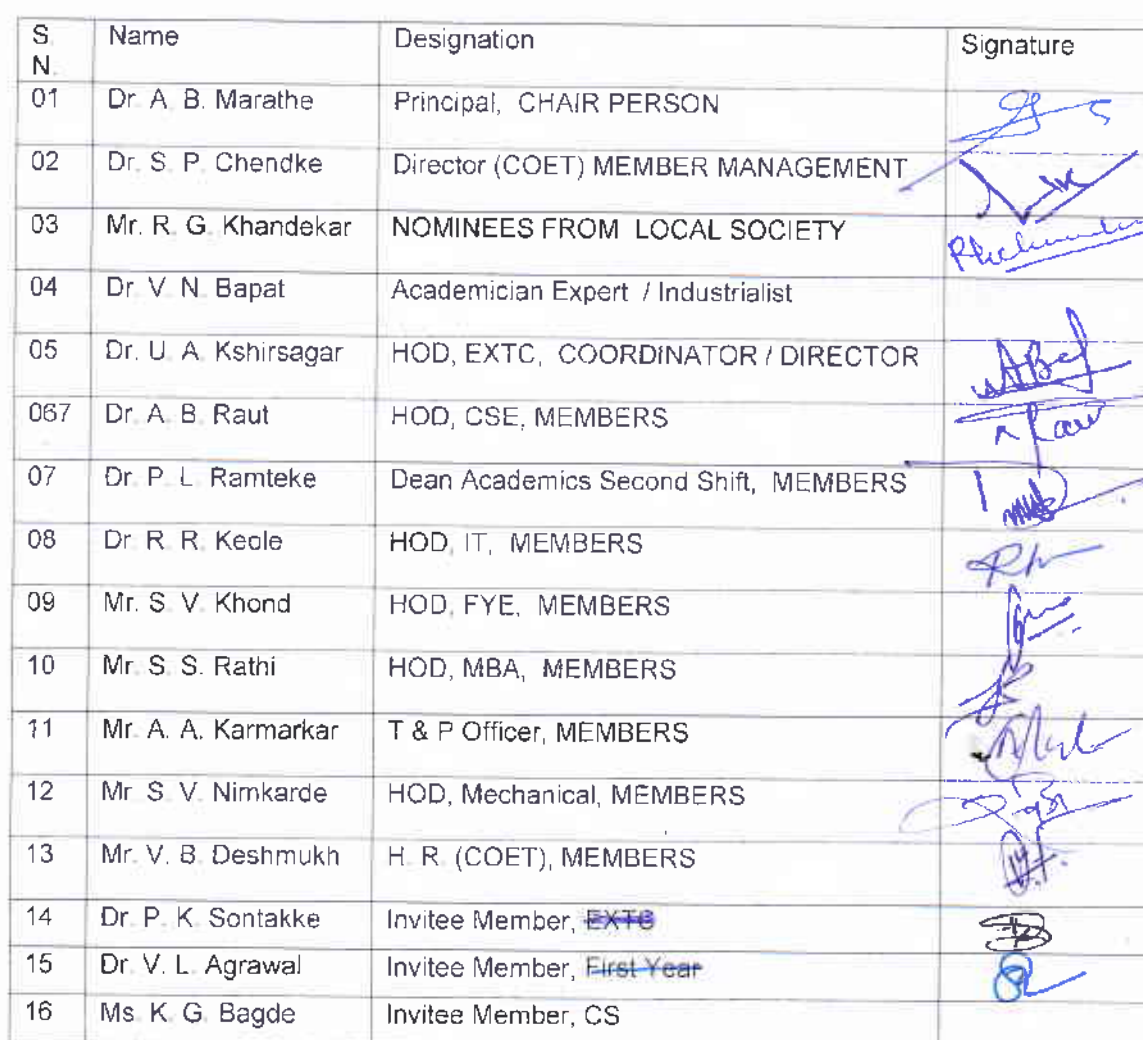 S. Name Designation Signature
N.
01 Dr. A. B. Marathe Principal, CHAIR PERSON
02 Dr. S. P. Chendke Director (COET) MEMBER MANAGEMENT
03 Mr. R. G. Khandekar NOMINEES FROM LOCAL SOCIETY
04 Dr. V. N. Bapat Academician Expert / Industrialist
05 Dr. U. A. Kshirsagar HOD, EXTC, COORDINATOR / DIRECTOR
067 Dr. A. B. Raut HOD, CSE, MEMBERS
07 Dr. P. L. Ramteke Dean Academics Second Shift, MEMBERS
08 Dr. R. R. Keole HOD, IT, MEMBERS
09 Mr. S. V. Khond HOD, FYE, MEMBERS
10 Mr. S. S. Rathi HOD, MBA, MEMBERS
11 Mr. A. A. Karmarkar T & P Officer, MEMBERS
12 Mr. S. V. Nimkarde HOD, Mechanical, MEMBERS
13 Mr. V. B. Deshmukh H. R. (COET), MEMBERS
14 Dr. P. K. Sontakke Invitee Member, EXTC
15 Dr. V. L. Agrawal Invitee Member, First Year
16 Ms. K. G. Bagde Invitee Member, CS